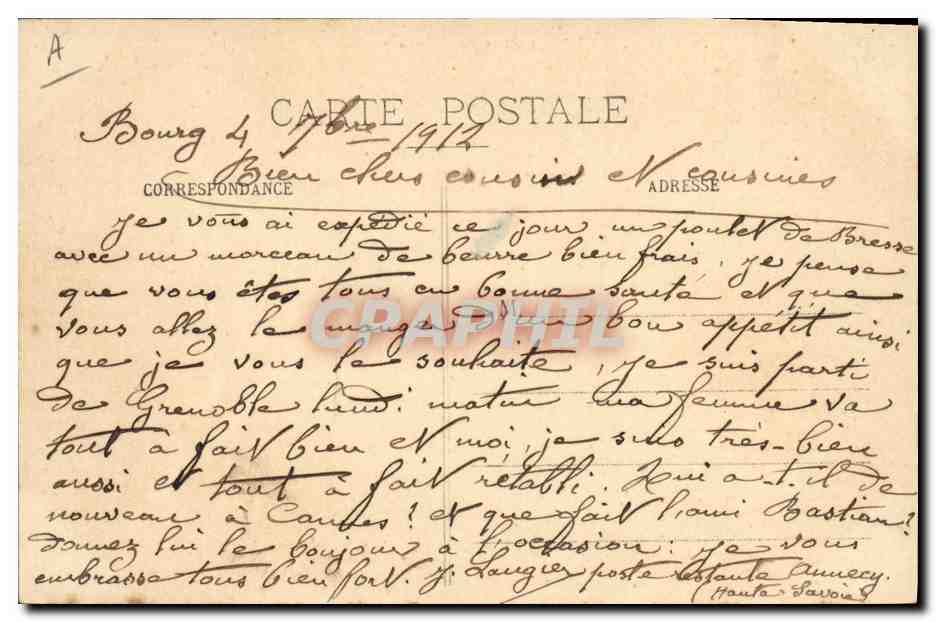 A
CARTE POSTALE
Bourg 4 7bre 1912
Bien chers cousins et cousines
CORRESPONDANCE ADRESSE
Je vous ai expédié ce jour un poulet de Bresse
avec un morceau de beurre bien frais, je pense
que vous êtes tous en bonne santé et que
vous allez le manger d'un bon appétit ainsi
que je vous le souhaite, je suis parti
de Grenoble lundi matin ma femme va
tout à fait bien et moi, je suis très-bien
aussi et tout à fait rétabli. Qui a-t-il de
nouveau à Cannes? et que fait l'ami Bastian?
donnez lui le bonjour à l'occasion: je vous
embrasse tous bien fort. J. Laugier poste restante Annecy.
(Haute Savoie)
CPAPHIL